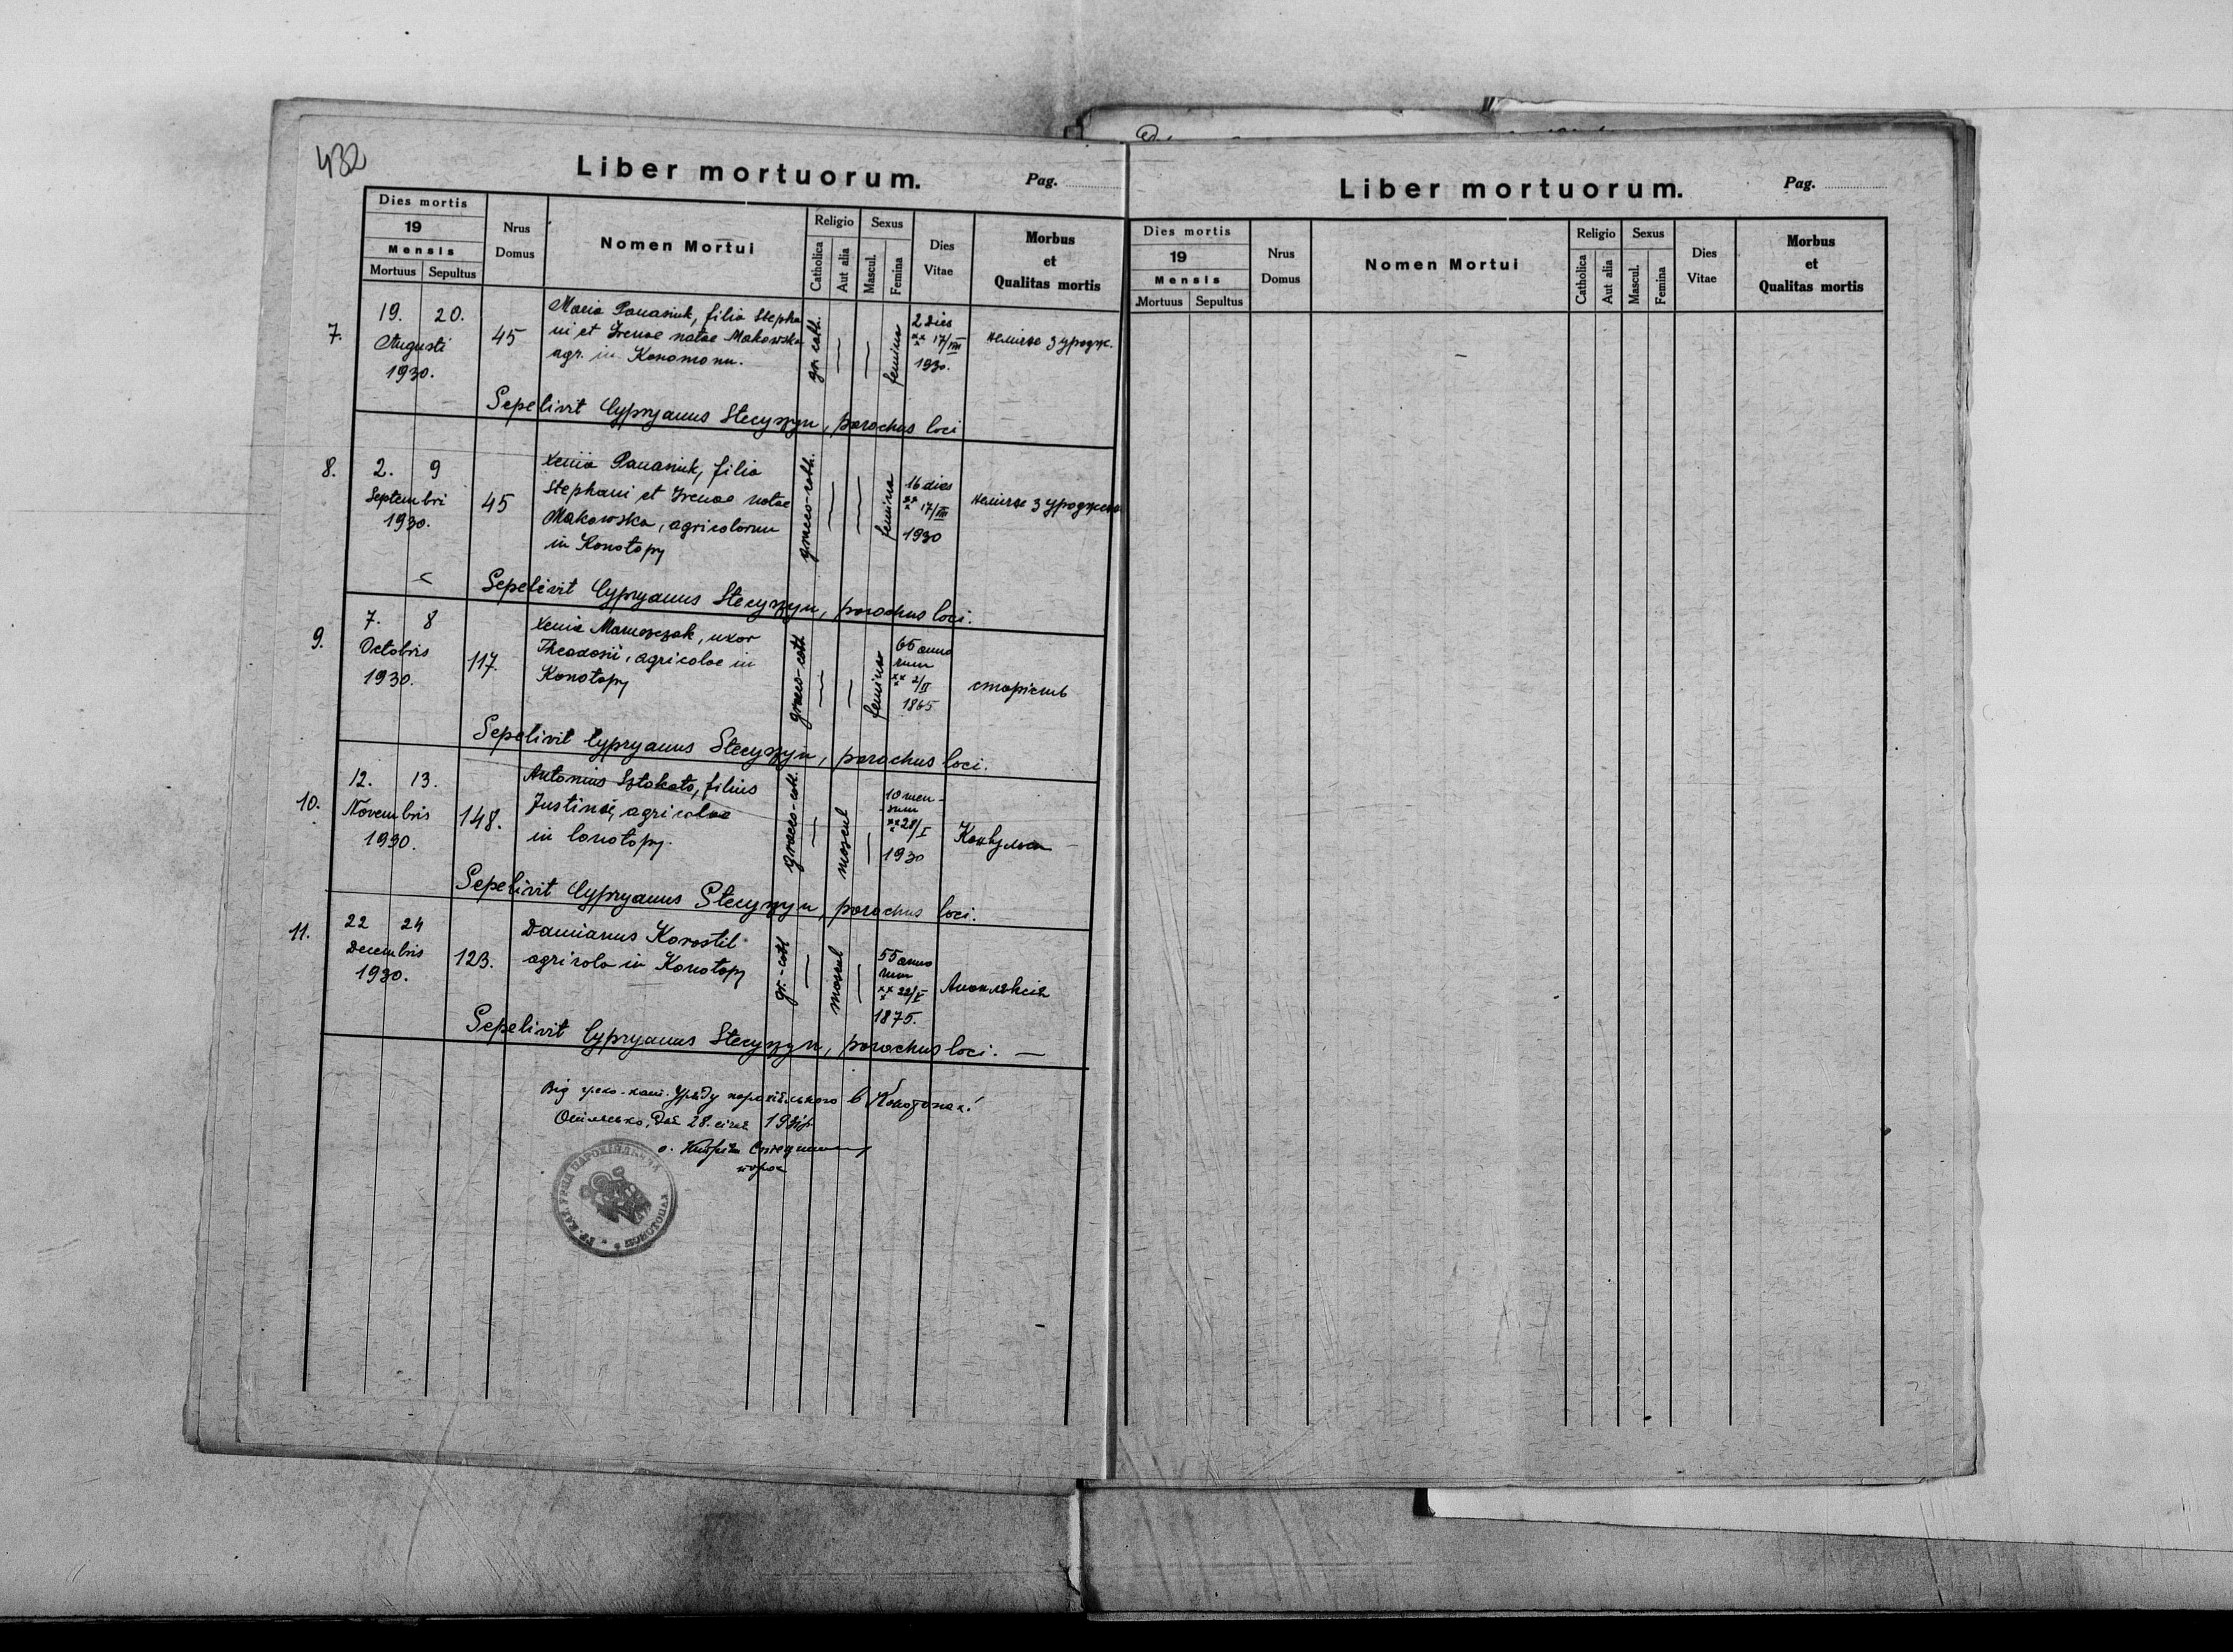 432
Liber mortuorum.
Pag.
Dies mortis
19
Mensis
Mortuus Sepultus
Nrus
Domus
Nomen Mortui
Religio
Catholica
Aut alia
Sexus
Mascul.
Femina
Dies
Vitae
Morbus
et
Qualitas mortis
7.
19. 20.
Augusti
1930.
45
Maria Panasiuk, filia Stepha
ni et Irenae natae Makowska
agr. in
gr. cath.
femina
2 dies
17/VIII
1930.
неміч з уродж.
Sepelivit Cypryanus Stecyszyn, parochus loci
8.
2. 9
Septembri
1930.
45
Xenia Panasiuk, filia
Stephani et Irenae natae
Makowska, agricolarum
in Konotopy
graeco-cath.
femina
16 dies
17/VIII
1930
неміч з
Sepelivit Cypryanus Stecyszyn, parochus loci.
9.
7. 8
Octobris
1930.
117.
Xenia uxor
Theodosii, agricolae in
Konotopy
graeco-cath
femina
65 anno
rum
2/II
1865
старість
Sepelivit Cypryanus Stecyszyn, parochus loci.
10.
12. 13.
Novembris
1930.
148.
Antonius Sztokało, filius
Justini, agricolae
in Conotopy.
graeco-cath.
mascul
10 men-
sium
28/I
1930
Sepelivit Cypryanus Stecyszyn, parochus loci.
11.
22 24
Decembris
1930.
123.
Damianus Korostil
agricola in Konotopy
gr.-cath
mascul
55 anno
rum
22/V
1875.
Sepelivit Cypryanus Stecyszyn, parochus loci.
Від греко-кат. Уряду парохіяльного в Конотопах!
28. січня
о.
парох
Liber mortuorum.
Pag.
Dies mortis
19
Mensis
Mortuus Sepultus
Nrus
Domus
Nomen Mortui
Religio
Catholica
Aut alia
Sexus
Mascul.
Femina
Dies
Vitae
Morbus
et
Qualitas mortis